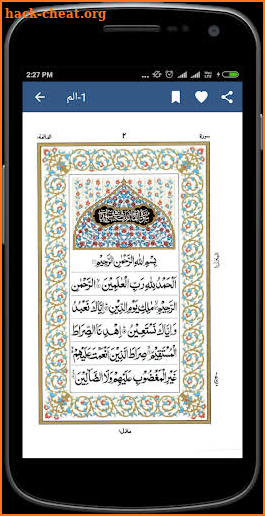 hack-cheat.org
2:27 PM
1-الم
سورة
٢
الفاتحة
بِسْمِ اللهِ الرَّحْمٰنِ الرَّحِيْمِ
اَلْحَمْدُ لِلّٰهِ رَبِّ الْعٰلَمِيْنَ الرَّحْمٰنِ
الرَّحِيْمِ مٰلِكِ يَوْمِ الدِّيْنِ اِيَّاكَ نَعْبُدُ
وَاِيَّاكَ نَسْتَعِيْنُ اِهْدِنَا الصِّرَاطَ
الْمُسْتَقِيْمَ صِرَاطَ الَّذِيْنَ اَنْعَمْتَ عَلَيْهِمْ
غَيْرِ الْمَغْضُوْبِ عَلَيْهِمْ وَلَا الضَّآلِّيْنَ
منزل